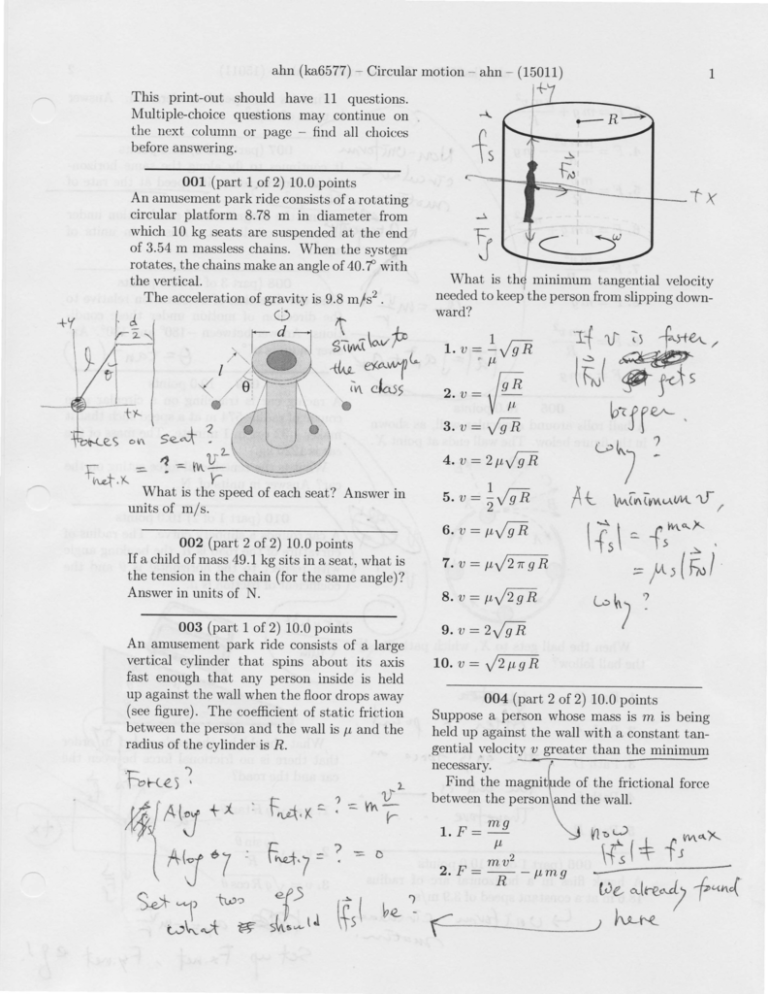 ahn (ka6577) – Circular motion – ahn – (15011)
1
This print-out should have 11 questions.
Multiple-choice questions may continue on
the next column or page – find all choices
before answering.
001 (part 1 of 2) 10.0 points
An amusement park ride consists of a rotating
circular platform 8.78 m in diameter from
which 10 kg seats are suspended at the end
of 3.54 m massless chains. When the system
rotates, the chains make an angle of 40.7° with
the vertical.
The acceleration of gravity is 9.8 m/s².
+y
d/2
l
θ
+x
d
l
θ
similar to
the example
in class
Forces on seat ?
F_net.x = ? = m v²/r
What is the speed of each seat? Answer in
units of m/s.
002 (part 2 of 2) 10.0 points
If a child of mass 49.1 kg sits in a seat, what is
the tension in the chain (for the same angle)?
Answer in units of N.
003 (part 1 of 2) 10.0 points
An amusement park ride consists of a large
vertical cylinder that spins about its axis
fast enough that any person inside is held
up against the wall when the floor drops away
(see figure). The coefficient of static friction
between the person and the wall is μ and the
radius of the cylinder is R.
Forces ?
Along +x : F_net.x = ? = m v²/r
Along +y : F_net.y = ? = 0
Set up two eqs
what should |f⃗s| be ?
+y
R
f⃗s
F⃗N
+x
F⃗g
ω
What is the minimum tangential velocity
needed to keep the person from slipping down-
ward?
1. v = 1/μ √(g R)
2. v = √(g R/μ)
3. v = √(g R)
4. v = 2 μ √(g R)
5. v = 1/2 √(g R)
6. v = μ √(g R)
7. v = μ √(2 π g R)
8. v = μ √(2 g R)
9. v = 2 √(g R)
10. v = √(2 μ g R)
If v is faster,
|F⃗N| gets
bigger.
why ?
At minimum v,
|f⃗s| = fs^max
= μs |F⃗N|.
why ?
004 (part 2 of 2) 10.0 points
Suppose a person whose mass is m is being
held up against the wall with a constant tan-
gential velocity v greater than the minimum
necessary.
Find the magnitude of the frictional force
between the person and the wall.
1. F = m g/μ
2. F = m v²/R − μ m g
now
|f⃗s| ≠ fs^max
We already found
here